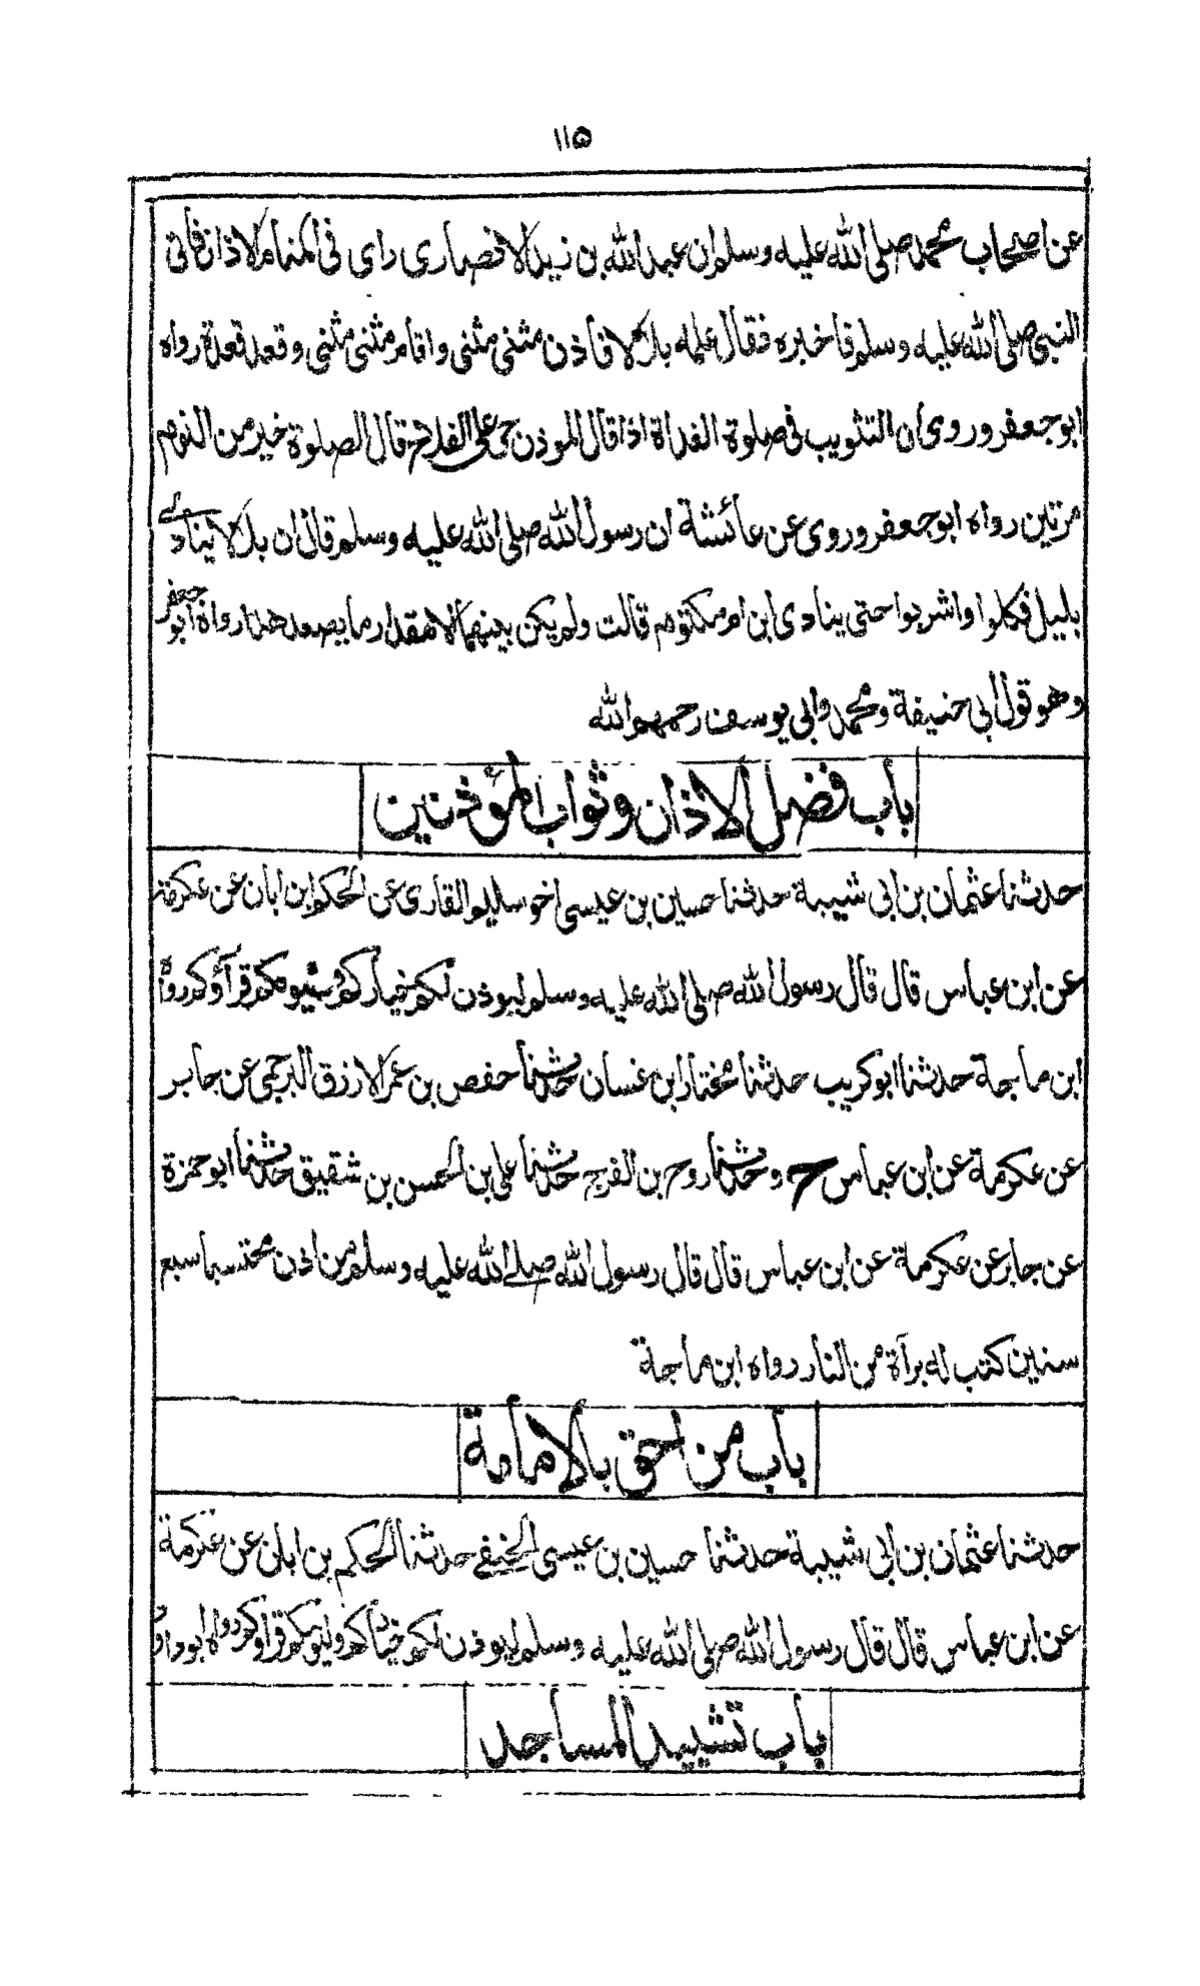 ۱۱۵
عن اصحاب محمد صلى الله عليه وسلم ان عبد الله بن زيد الانصارى راى فى المنام الاذان فاتى
النبى صلى الله عليه وسلم فاخبره فقال علمه بلالا فاذن مثنى مثنى واقام مثنى مثنى وقعد قعدة رواه
ابو جعفر وروى ان التثويب فى صلوة الغداة اذا قال الموذن حى على الفلاح قال الصلوة خير من النوم
مرتين رواه ابو جعفر وروى عن عائشة ان رسول الله صلى الله عليه وسلم قال ان بلالا ينادى
بليل فكلوا واشربوا حتى ينادى ابن ام مكتوم قالت ولم يكن بينهما الا مقدار ما يصعد هذا رواه ابو جعفر
وهو قول ابى حنيفة ومحمد وابى يوسف رحمهم الله
باب فضل الاذان وثواب المؤذنين
حدثنا عثمان بن ابى شيبة حدثنا حسين بن عيسى اخو سليم القارى عن الحكم ابن ابان عن عكرمة
عن ابن عباس قال قال رسول الله صلى الله عليه وسلم ليوذن لكم خياركم وليؤمكم قرآؤكم رواه
ابن ماجة حدثنا ابو كريب حدثنا مختار ابن غسان حدثنا حفص بن عمر الازرق البرجمى عن جابر
عن عكرمة عن ابن عباس ح وحدثنا روح بن الفرج حدثنا على بن الحسن بن شقيق حدثنا ابو حمزة
عن جابر عن عكرمة عن ابن عباس قال قال رسول الله صلى الله عليه وسلم من اذن محتسبا سبع
سنين كتب له برآة من النار رواه ابن ماجة
باب من احق بالامامة
حدثنا عثمان بن ابى شيبة حدثنا حسين بن عيسى الحنفى حدثنا الحكم بن ابان عن عكرمة
عن ابن عباس قال قال رسول الله صلى الله عليه وسلم ليوذن لكم خياركم وليؤمكم قرآؤكم رواه ابو داؤد
باب تشييد المساجد